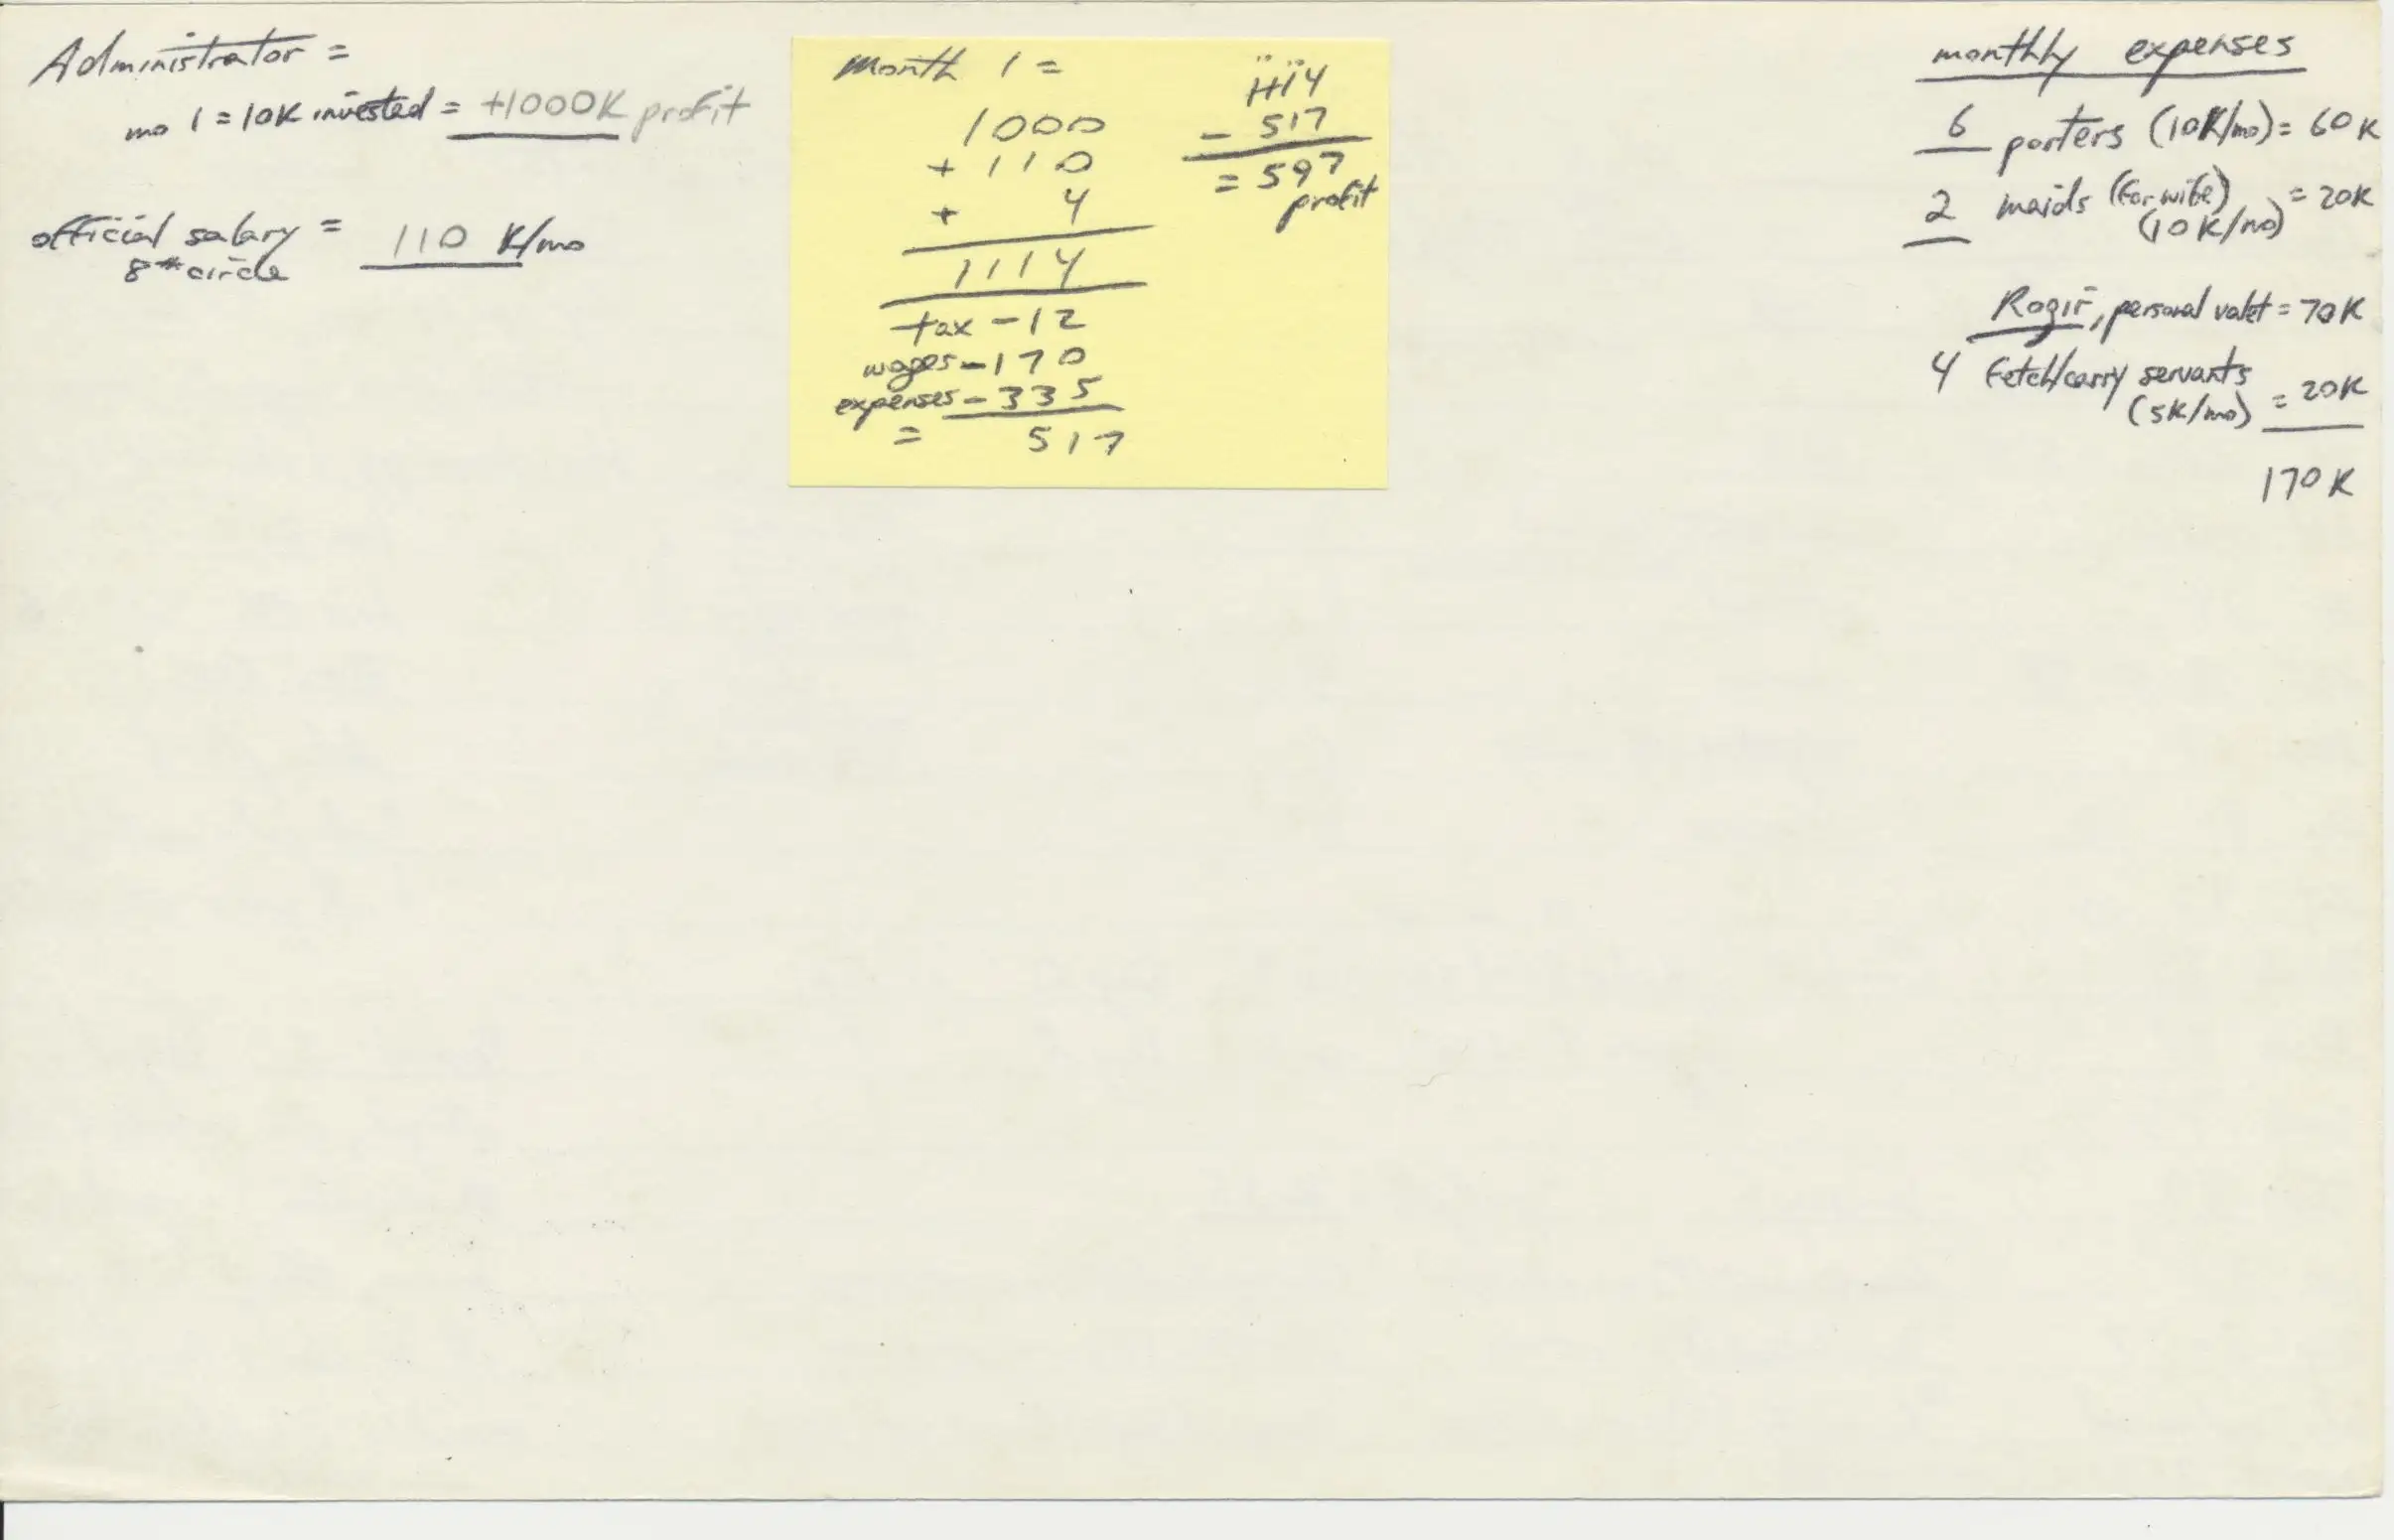 Administrator =
mo 1 = 10K invested = +1000K profit
official salary = 110 K/mo
8th circle
Month 1 =
1000
+ 110
+ 4
1114
tax - 12
wages - 170
expenses - 335
= 517
1114
- 517
= 597
profit
monthly expenses
6 porters (10K/mo) = 60K
2 maids (for wife) = 20K
(10K/mo)
Rogir, personal valet = 70K
4 fetch/carry servants
(5K/mo) = 20K
170K